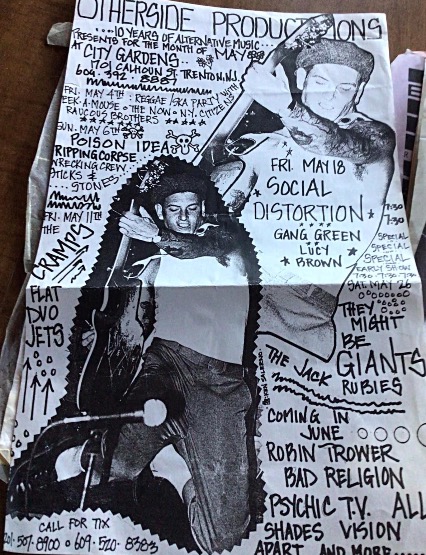 OTHERSIDE PRODUCTIONS
....10 YEARS OF ALTERNATIVE MUSIC....
PRESENTS FOR THE MONTH OF MAY
AT CITY GARDENS..
1701 CALHOUN ST. TRENTON N.J.
609-392-8887
FRI. MAY 4TH: REGGAE/SKA PARTY WITH
EEK-A-MOUSE • THE NOW • N.Y. CITIZENS
RAUCOUS BROTHERS
SUN. MAY 6TH
POISON IDEA
RIPPING CORPSE
WRECKING CREW
STICKS &
.... STONES
FRI. MAY 11TH
THE
CRAMPS
FLAT
DUO
JETS
FRI. MAY 18
SOCIAL
DISTORTION
GANG GREEN
LUCY
BROWN
7:30
7:30
SPECIAL
SPECIAL
SPECIAL
EARLY SHOW
7:30 7:30 7:30
SAT. MAY 26
THEY
MIGHT
BE
GIANTS
THE JACK
RUBIES
COMING IN
JUNE
ROBIN TROWER
BAD RELIGION
PSYCHIC T.V. ALL
SHADES VISION
APART AND MORE....
CALL FOR TIX
201-507-8900 • 609-520-8383